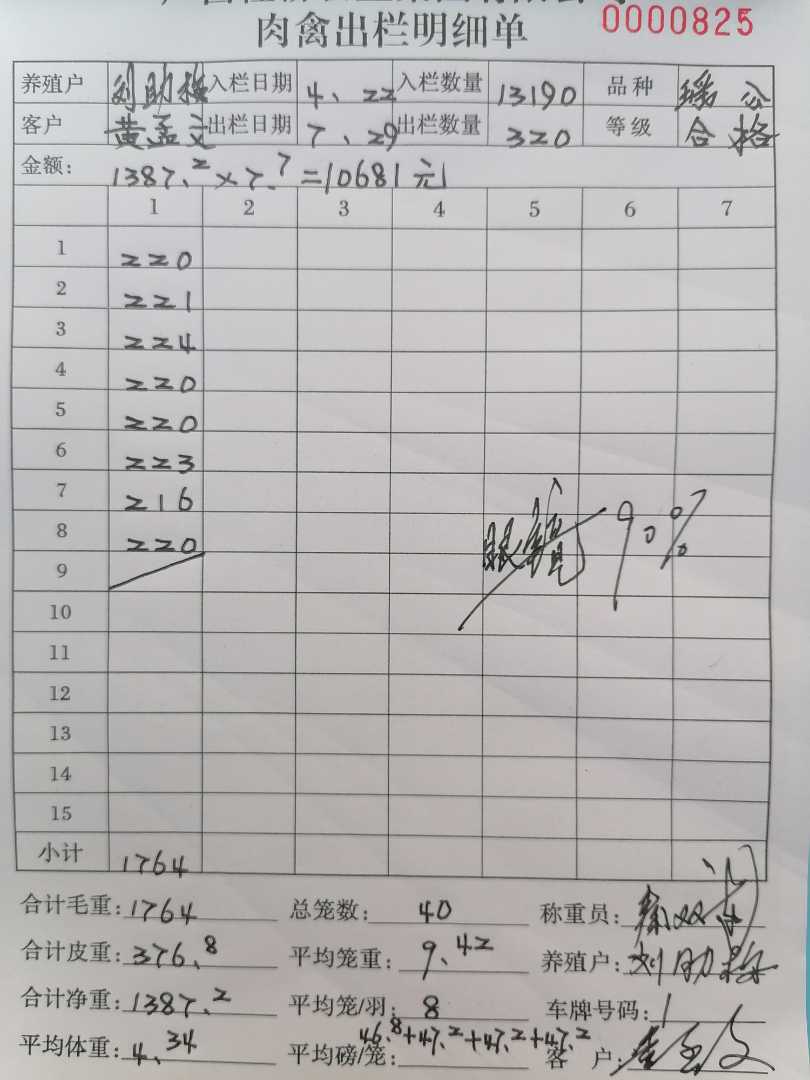 肉禽出栏明细单 0000825
养殖户 刘助 入栏日期 4、22 入栏数量 13190 品种 瑶公
客户 黄孟文 出栏日期 7、29 出栏数量 320 等级 合格
金额: 1387.2×7.7=10681元
1 2 3 4 5 6 7
1 220
2 221
3 224
4 220
5 220
6 223
7 216
8 220
9
10
11
12
13
14
15
90%
小计 1764
合计毛重: 1764 总笼数: 40 称重员:
合计皮重: 376.8 平均笼重: 9.42 养殖户: 刘助
合计净重: 1387.2 平均笼/羽: 8 车牌号码: 1
平均体重: 4.34 平均磅/笼: 46.8+47.2+47.2+47.2 客户: